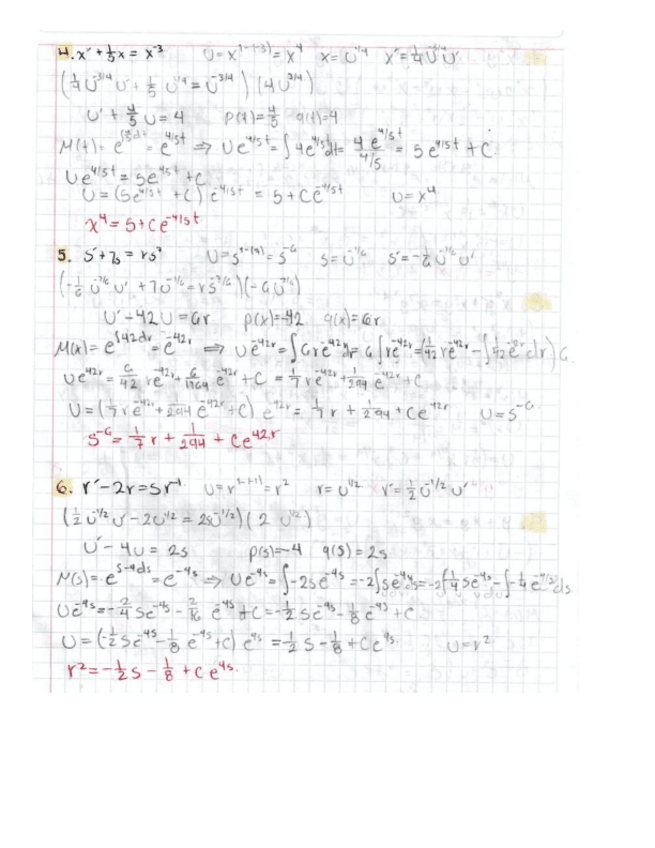 4. x' + 1/5 x = x^-3   U = x^1-(-3) = x^4   x = U^1/4   x' = 1/4 U^-3/4 U'
(1/4 U^-3/4 U' + 1/5 U^1/4 = U^-3/4) (4U^3/4)
U' + 4/5 U = 4   P(t) = 4/5   q(t) = 4
M(t) = e^∫4/5dt = e^4/5t ⇒ Ue^4/5t = ∫4e^4/5t dt = 4e^4/5t / 4/5 = 5e^4/5t + C
Ue^4/5t = 5e^4/5t + C
U = (5e^4/5t + C) e^-4/5t = 5 + Ce^-4/5t   U = x^4
x^4 = 5 + Ce^-4/5t
5. S' + 7s = rs^7   U = s^1-(7) = s^-6   s = U^-1/6   s' = -1/6 U^-7/6 U'
(-1/6 U^-7/6 U' + 7U^-1/6 = rs^-7/6)(-6U^7/6)
U' - 42U = 6r   p(x) = -42   q(x) = 6r
M(x) = e^∫42dr = e^-42r ⇒ Ue^-42r = ∫6re^-42r dr = 6∫re^-42r
Ue^-42r = 6/42 re^-42r + 6/1764 e^-42r + C = 1/7 re^-42r + 1/294 e^-42r + C
U = (1/7 re^-42r + 1/294 e^-42r + C) e^42r = 1/7 r + 1/294 + Ce^42r   U = s^-6
s^-6 = 1/7 r + 1/294 + Ce^42r
6. r' - 2r = sr^-1   U = r^1-(-1) = r^2   r = U^1/2   r' = 1/2 U^-1/2 U'
(1/2 U^-1/2 U' - 2U^1/2 = 2sU^-1/2)(2U^1/2)
U' - 4U = 2s   p(s) = -4   q(s) = 2s
M(s) = e^∫-4ds = e^-4s ⇒ Ue^-4s = ∫-2se^-4s = -2∫se^-4s ds
Ue^-4s = -2/4 se^-4s - 2/16 e^-4s + C = -1/2 se^-4s - 1/8 e^-4s + C
U = (-1/2 se^-4s - 1/8 e^-4s + C) e^4s = -1/2 s - 1/8 + Ce^4s   U = r^2
r^2 = -1/2 s - 1/8 + Ce^4s